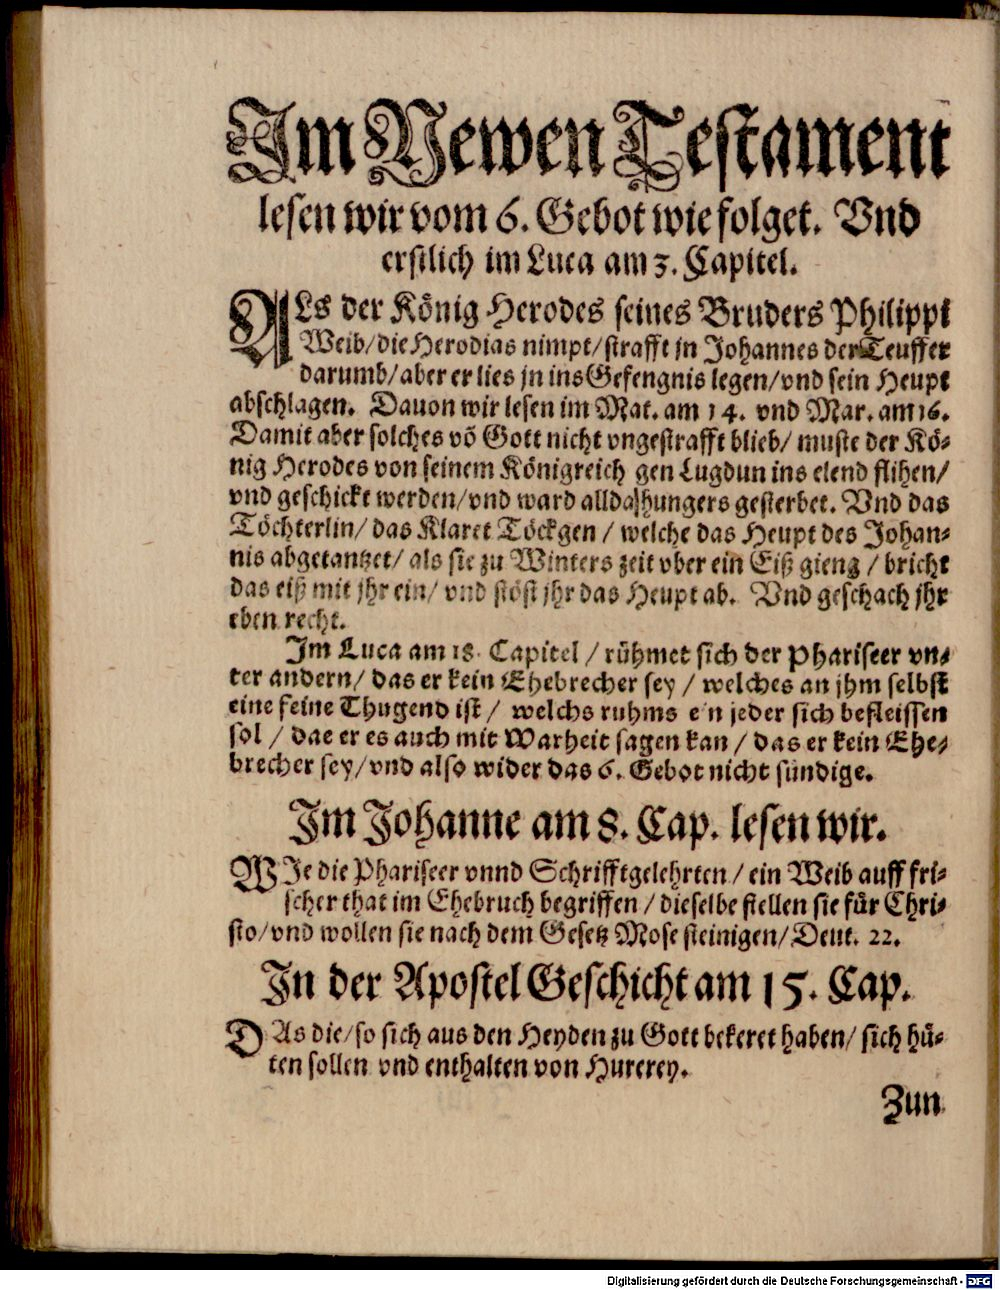 Im Newen Testament
lesen wir vom 6. Gebot wie folget. Vnd
erstlich im Luca am 3. Capitel.
ALs der König Herodes seines Bruders Philippi
Weib/die Herodias nimpt/strafft jn Johannes der Teuffer
darumb/aber er lies jn ins Gefengnis legen/vnd sein Heupt
abschlagen. Dauon wir lesen im Mat. am 14. vnd Mar. am 16.
Damit aber solches võ Gott nicht vngestrafft blieb/ muste der Kö-
nig Herodes von seinem Königreich gen Lugdun ins elend flihen/
vnd geschickt werden/vnd ward allda hungers gesterbet. Vnd das
Töchterlin/ das Klaret Töckgen / welche das Heupt des Johan-
nis abgetantzet/ als sie zu Winters zeit vber ein Eiß gieng / bricht
das eiß mit jhr ein/ vnd stöst jhr das Heupt ab. Vnd geschach jhr
eben recht.
Im Luca am 18. Capitel / rühmet sich der Phariseer vn-
ter andern/ das er kein Ehebrecher sey / welches an jhm selbst
eine feine Thugend ist / welchs ruhms e n jeder sich befleissen
sol / dae er es auch mit Warheit sagen kan / das er kein Ehe-
brecher sey/vnd also wider das 6. Gebot nicht sündige.
Im Johanne am 8. Cap. lesen wir.
WIe die Phariseer vnnd Schrifftgelehrten / ein Weib auff fri-
scher that im Ehebruch begriffen / dieselbe stellen sie für Chri-
sto/vnd wollen sie nach dem Gesetz Mose steinigen/Deut. 22.
In der Apostel Geschicht am 15. Cap.
DAs die/so sich aus den Heyden zu Gott bekeret haben/ sich hü-
ten sollen vnd enthalten von Hurerey.
Zun
Digitalisierung gefördert durch die Deutsche Forschungsgemeinschaft - DFG